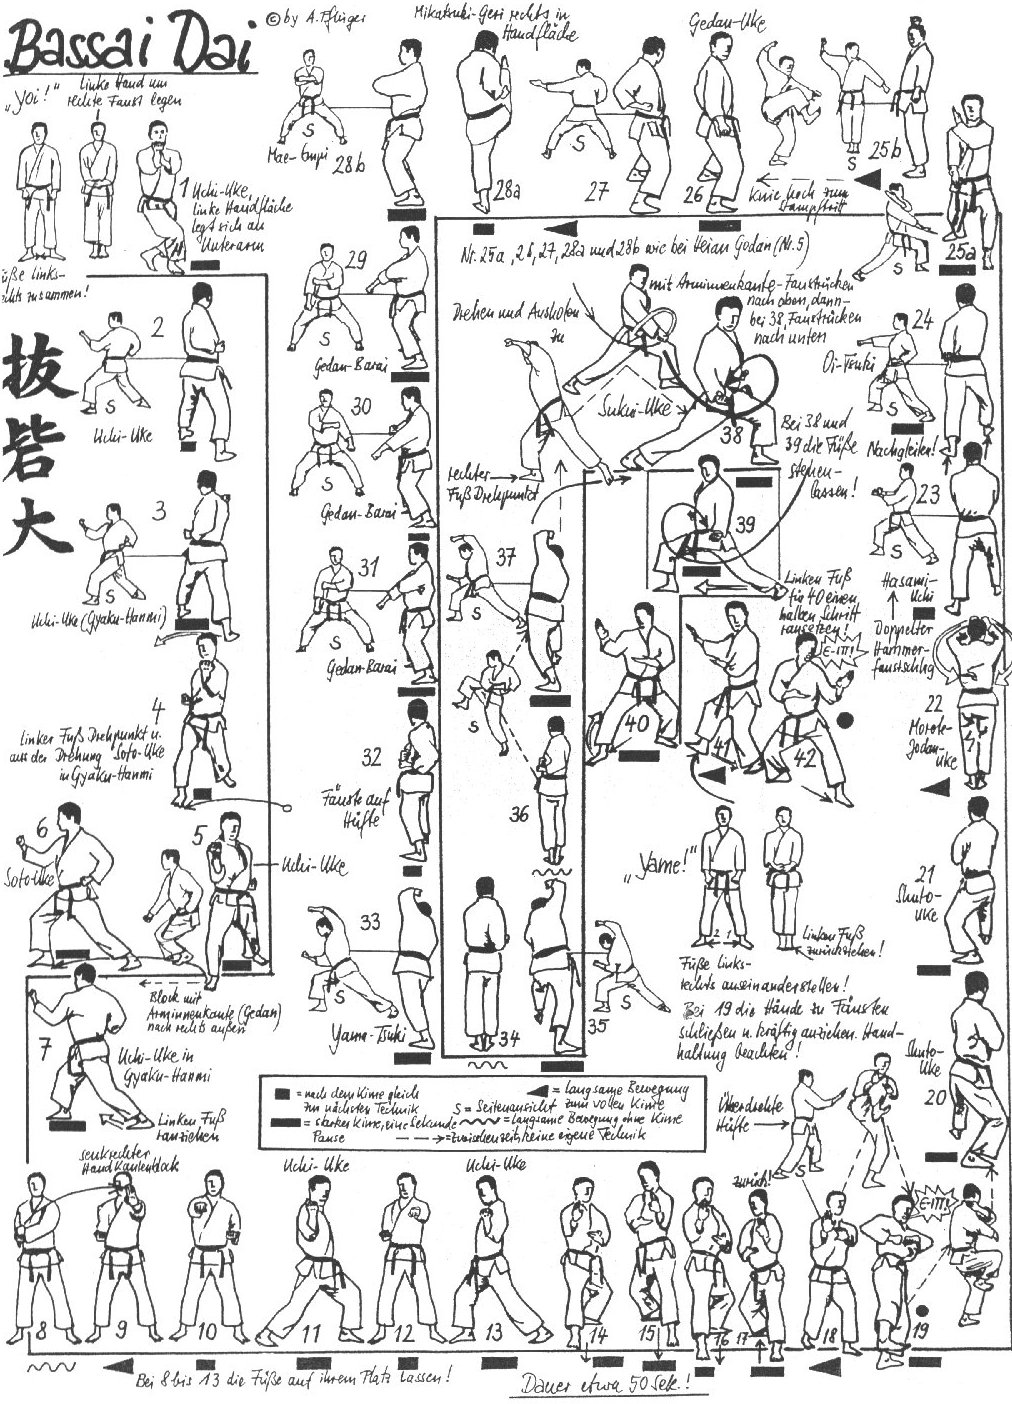 Bassai Dai
© by A. Pflüger
„Yoi!"
linke Hand um
rechte Faust legen
1 Uchi-Uke,
linke Handfläche
legt sich an
Unterarm
Füße links-
rechts zusammen!
抜
砦
大
2
S
Uchi-Uke
3
S
Uchi-Uke (Gyaku-Hanmi)
4
Linker Fuß Drehpunkt u.
aus der Drehung Soto-Uke
in Gyaku-Hanmi
5
Uchi-Uke
6
Soto-Uke
Block mit
Arminnenkante (Gedan)
nach rechts außen
7
Uchi-Uke in
Gyaku-Hanmi
Linken Fuß
ranziehen
senkrechter
Handkantenblock
8
9
10
Uchi-Uke
11
12
Uchi-Uke
13
14
15
16
zurück!
17
18
19
E-IT!
Bei 8 bis 13 die Füße auf ihrem Platz lassen!
Dauer etwa 50 Sek.!
Überdrehte
Hüfte
S
Shuto-
Uke
20
21
Shuto-
Uke
22
Morote-
Jodan-
Uke
Doppelter
Hammer-
faustschlag
Hasami-
Uchi
23
S
Nachgleiten!
24
Oi-Tsuki
S
25a
S
25b
S
Knie hoch zum
Stampftritt
Gedan-Uke
26
27
S
Mikatsuki-Geri rechts in
Handfläche
28a
S
Mae-Empi
28b
Nr. 25a, 26, 27, 28a und 28b wie bei Heian Godan (Nr. 5)
29
S
Gedan-Barai
30
S
Gedan-Barai
31
S
Gedan-Barai
32
Fäuste auf
Hüfte
33
S
Yama-Tsuki
34
35
S
36
37
S
S
rechter
Fuß Drehpunkt
Drehen und Ausholen
zu
Sukui-Uke
mit Arminnenkante-Faustrücken
nach oben, dann
bei 38, Faustrücken
nach unten
38
Bei 38 und
39 die Füße
stehen-
lassen!
39
Linken Fuß
für 40 einen
halben Schritt
ransetzen!
40
41
42
E-IT!
„Yame!"
2 1
Linken Fuß
zurückziehen!
Füße links-
rechts auseinanderstellen!
Bei 19 die Hände zu Fäusten
schließen u. kräftig anziehen. Hand-
haltung beachten!
= nach dem Kime gleich
zur nächsten Technik
= starkes Kime, eine Sekunde
Pause
= langsame Bewegung
zum vollen Kime
S = Seitenansicht
= langsame Bewegung ohne Kime
= Zwischenzeit, keine eigene Technik